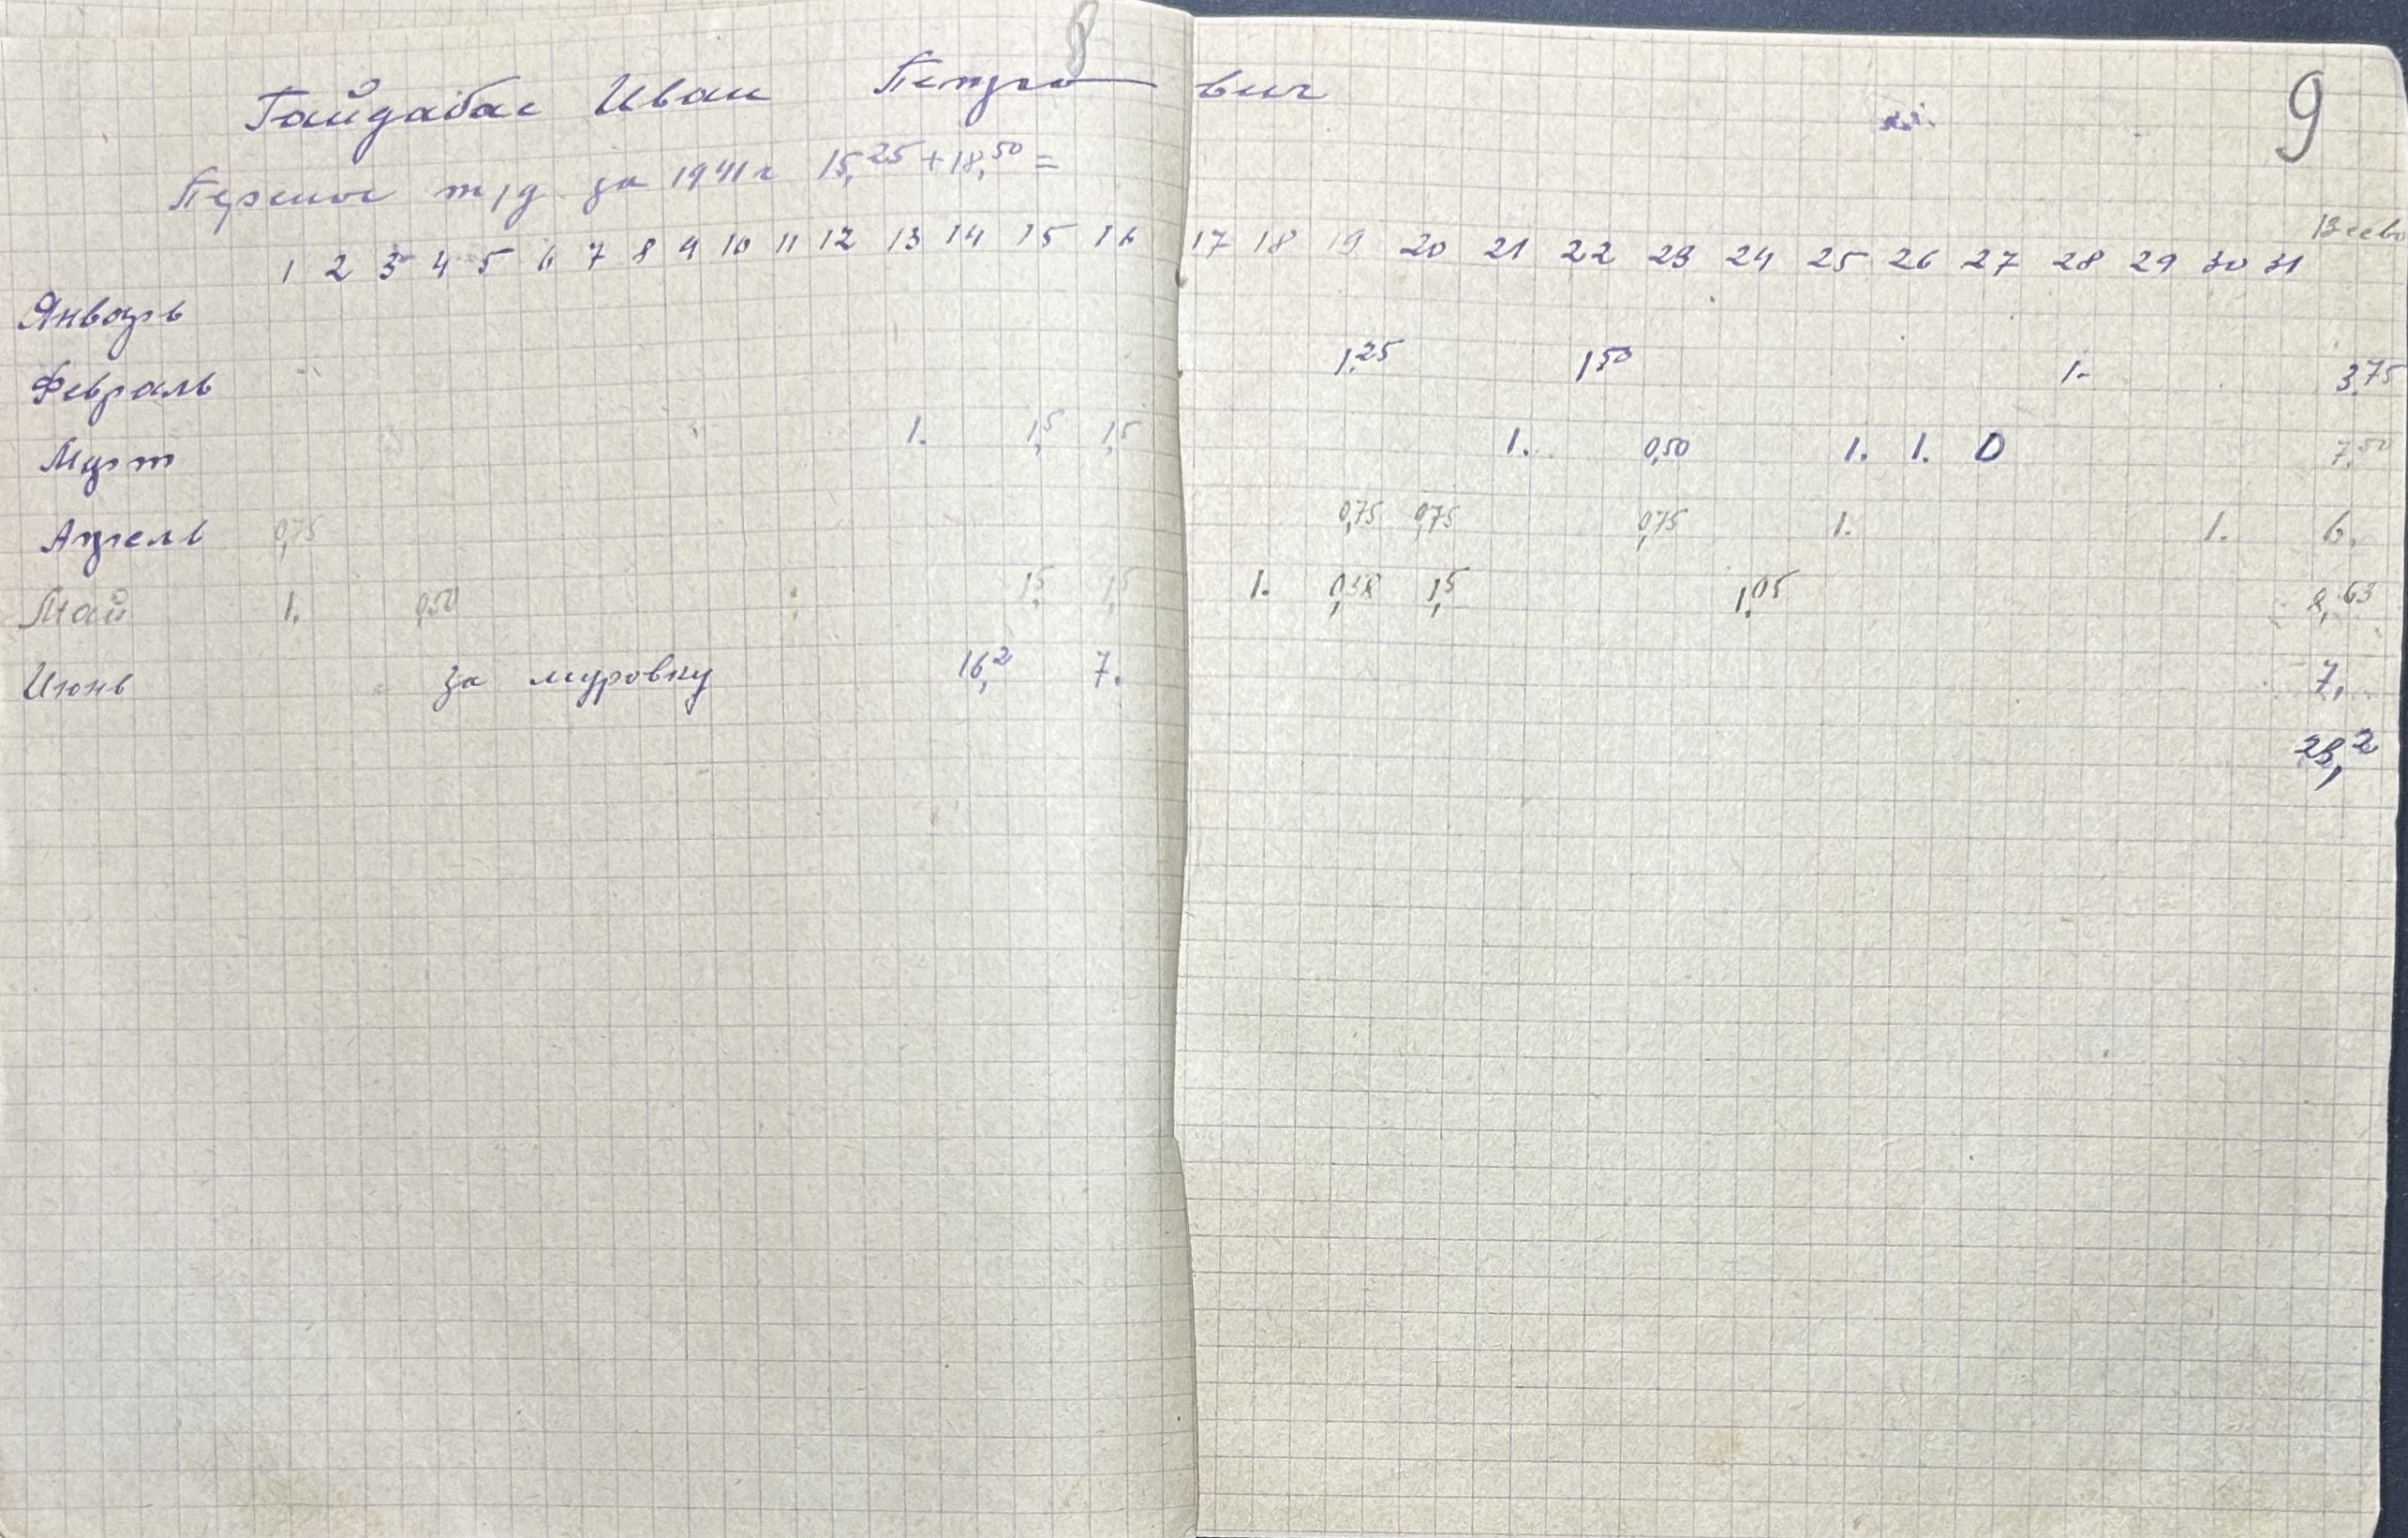 8
9
Гайдабас Иван Петрович
Перенос т/д за 1941 г 15,25+18,50=
1 2 3 4 5 6 7 8 9 10 11 12 13 14 15 16 17 18 19 20 21 22 23 24 25 26 27 28 29 30 31 Всево
Январь
Февраль 1,25 1 50 1- 3,75
Март 1. 1,5 1,5 1. 0,50 1. 1. 0 7,50
Апрель 0,75 0,75 0,75 0,75 1. 1. 6,
Май 1. 0,50 1,5 1,5 1. 0,58 1,5 1,05 8,63
Июнь за муровку 16,2 7. 7,
23,2